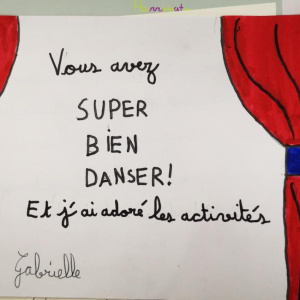 Vous avez
SUPER
BIEN
DANSER!
Et j'ai adoré les activités
Gabrielle